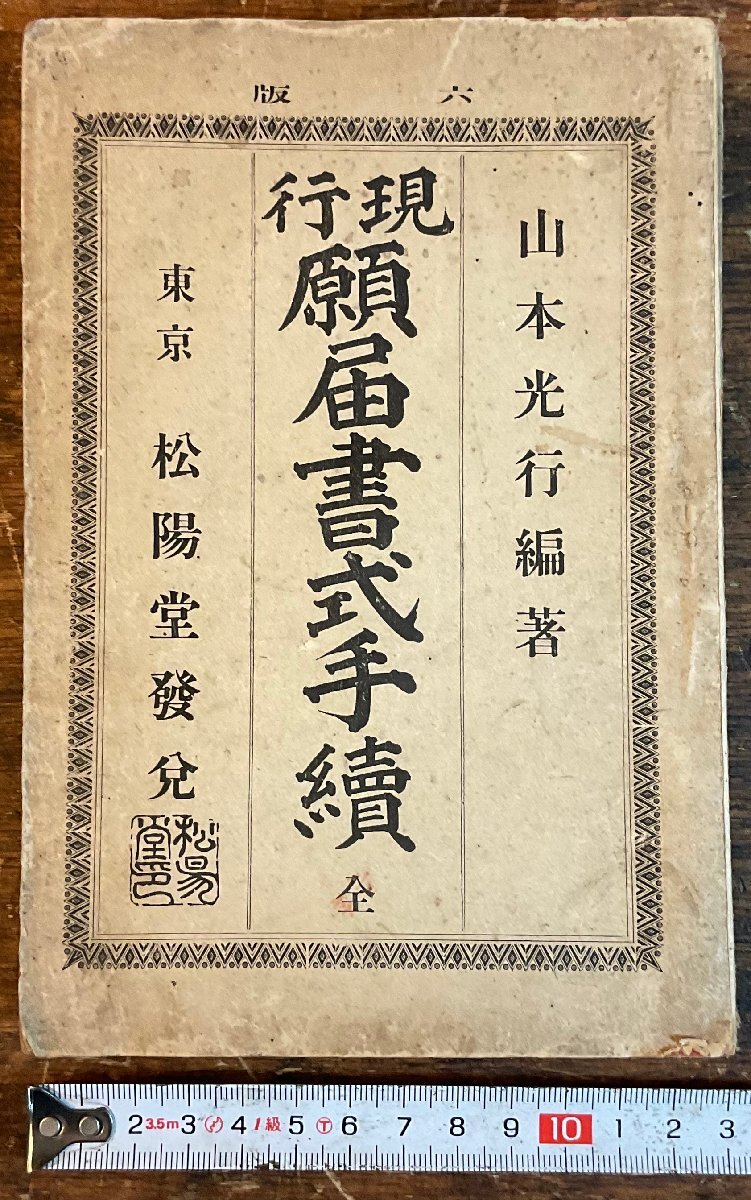 六版
山本光行編著
現行
願届書式手續
全
東京 松陽堂發兌
松昜堂印
2 3.5m 3 4 1級 5 T 6 7 8 9 10 1 2 3